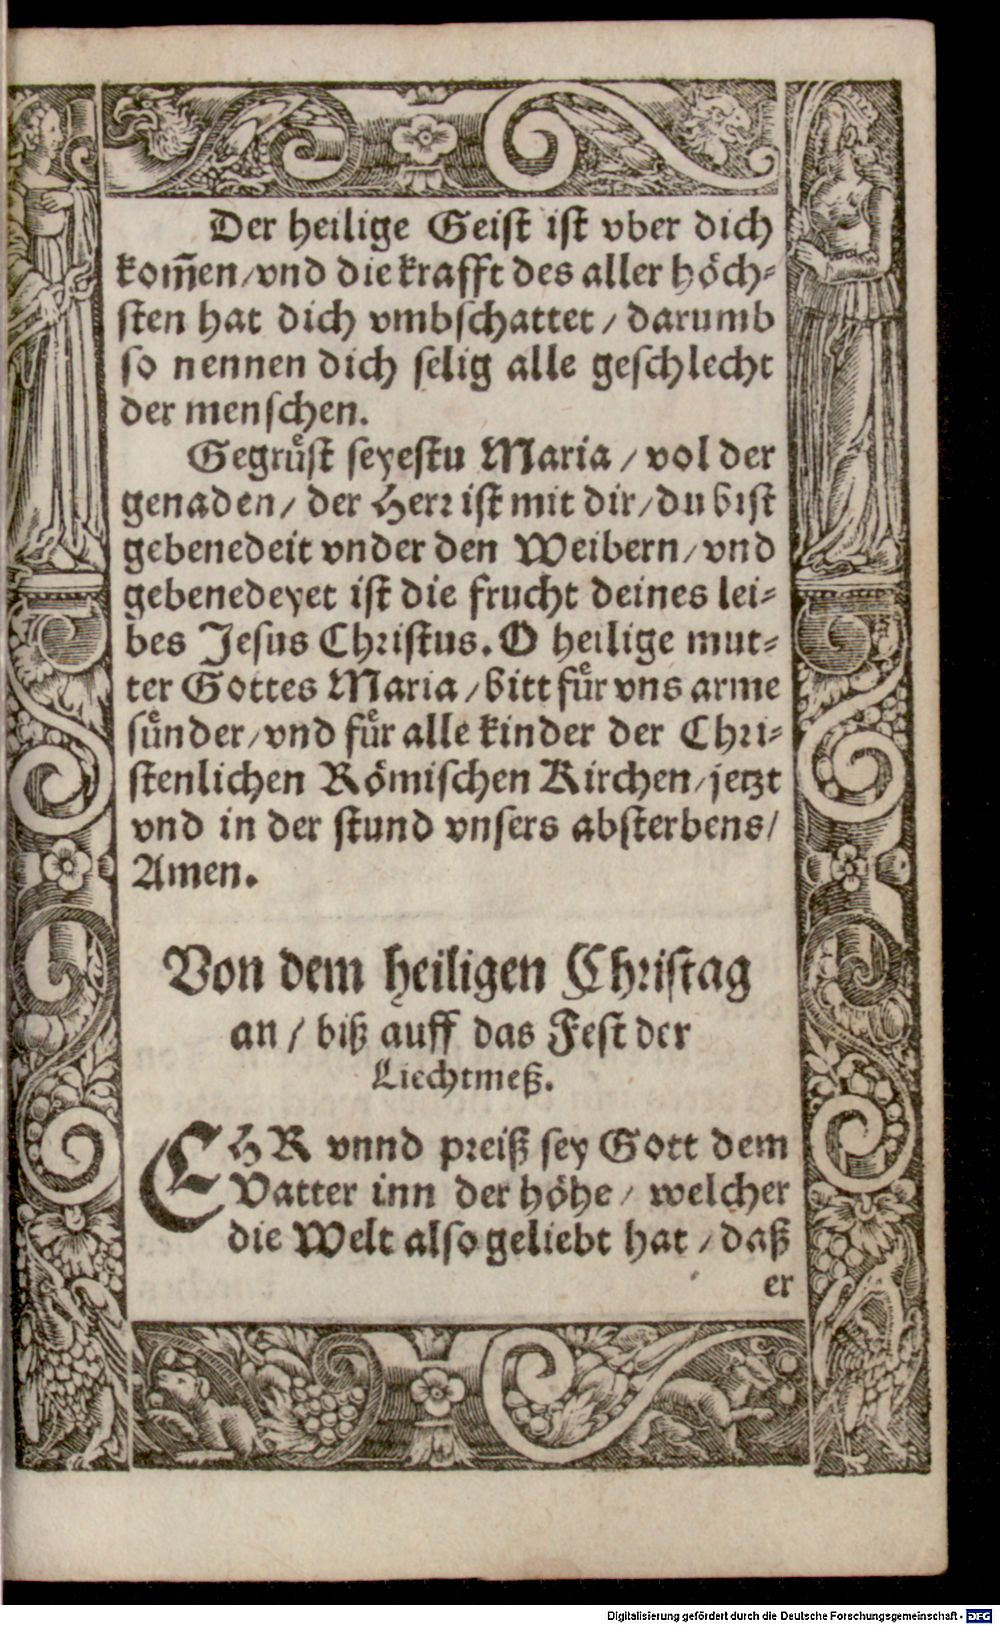 Der heilige Geist ist vber dich
kom̃en/vnd die krafft des aller höch-
sten hat dich vmbschattet / darumb
so nennen dich selig alle geschlecht
der menschen.
Gegruͤst seyestu Maria / vol der
genaden / der Herr ist mit dir / du bist
gebenedeit vnder den Weibern / vnd
gebenedeyet ist die frucht deines lei-
bes Jesus Christus. O heilige mut-
ter Gottes Maria / bitt fuͤr vns arme
suͤnder / vnd fuͤr alle kinder der Chri-
stenlichen Römischen Kirchen / jetzt
vnd in der stund vnsers absterbens /
Amen.
Von dem heiligen Christag
an / biß auff das Fest der
Liechtmeß.
EHR vnnd preiß sey Gott dem
Vatter inn der höhe / welcher
die Welt also geliebt hat / daß
er
Digitalisierung gefördert durch die Deutsche Forschungsgemeinschaft - DFG